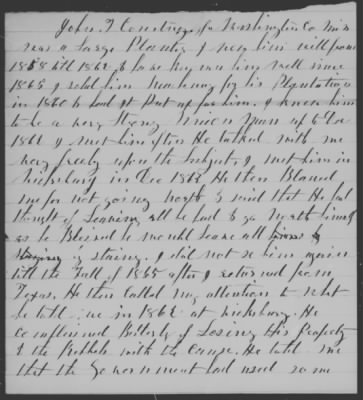 John F Courtney of Washington Co Miss
was a Large Planter I new him well from
1858 till 1862 & have known him well since
1865 I sold him Machinery for his Plantation
in 1860 & had it Put up for him. I knew him
to be a very Strong Union man up to Dec
1862 I met him often He talked with me
very freely upon the Subject, I met him in
Vicksburg in Dec 1862 He then Blamed
me for not going north & said that He had
thought of Leaving all he had & go North himself
as he Believed he would Loose all
by staying. I did not see him again
till the Fall of 1865 after I returned from
Texas. He then Called my attention to what
he told me in 1862 at Vicksburg. He
Complained Bitterly of Losing His Property
& the Rebbels with the Cause. He told me
that the Government had used some